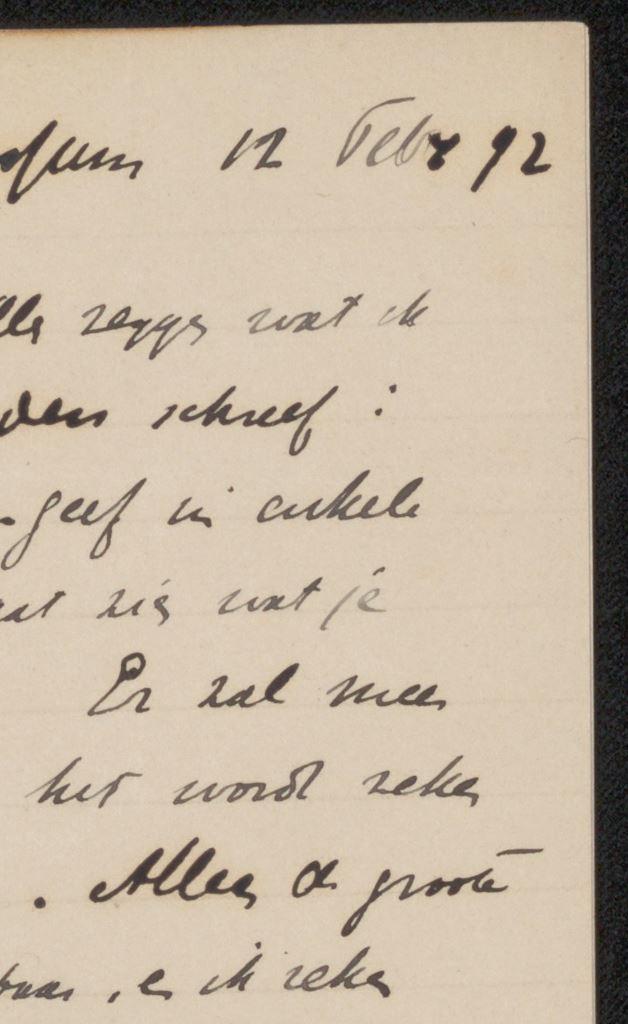 12 Febr 92
zeggen wat ik
schreef :
geef in enkele
zien wat je
Er zal meer
het wordt zeker
. Alleen de groote
, en ik zeker